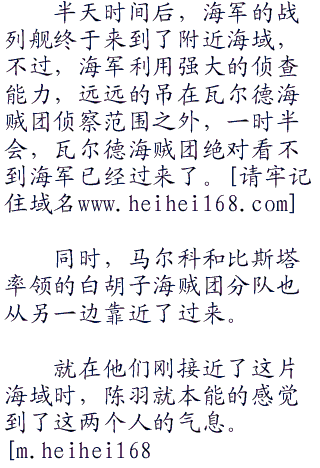 半天时间后，海军的战
列舰终于来到了附近海域，
不过，海军利用强大的侦查
能力，远远的吊在瓦尔德海
贼团侦察范围之外，一时半
会，瓦尔德海贼团绝对看不
到海军已经过来了。[请牢记
住域名www.heihei168.com]
同时，马尔科和比斯塔
率领的白胡子海贼团分队也
从另一边靠近了过来。
就在他们刚接近了这片
海域时，陈羽就本能的感觉
到了这两个人的气息。
[m.heihei168